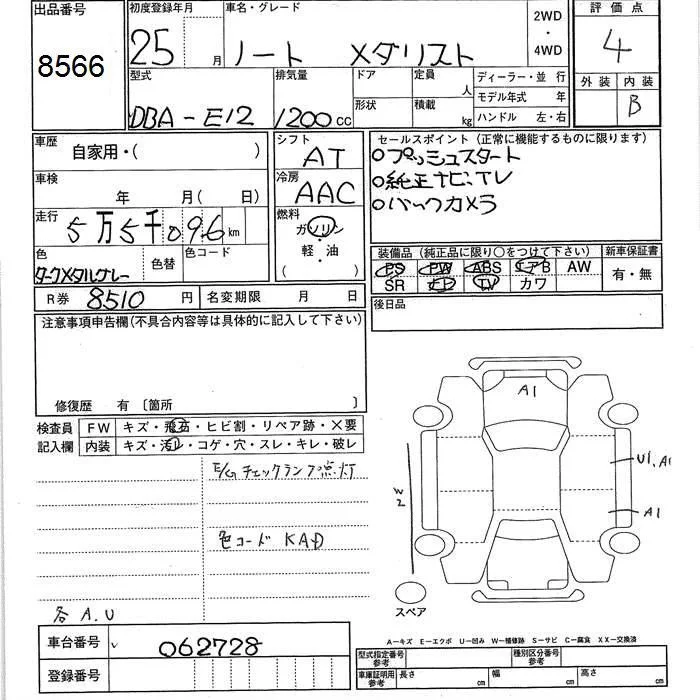 出品番号
8566
初度登録年月
25 月
車名・グレード
ノート メダリスト
2WD
・
4WD
評価点
4
外装 内装
B
型式
DBA-E12
排気量
1200 cc
ドア
形状
定員
人
積載
kg
ディーラー・並 行
モデル年式 年
ハンドル 左・右
車歴
自家用・( )
車検
年 月( 日)
走行
5万5千096km
色
ダークメタルグレー
色替
色コード
R券 8510 円
名変期限 月 日
シフト
AT
冷房
AAC
燃料
ガソリン
・
軽・油
( )
セールスポイント (正常に機能するものに限ります)
○プッシュスタート
○純正ナビ、TV
○バックカメラ
装備品 (純正品に限り○をつけて下さい)
PS PW ABS エアB AW
SR ナビ TV カワ
新車保証書
有・無
後日品
注意事項申告欄(不具合内容等は具体的に記入して下さい)
修復歴 有 〔箇所 〕
検査員
記入欄
FW キズ・飛石・ヒビ割・リペア跡・X要
内装 キズ・汚レ・コゲ・穴・スレ・キレ・破レ
E/Gチェックランプ点灯
色コード KAD
各 A.U
A1
U1,A1
A1
W2
スペア
A-キズ E-エクボ U-凹み W-補修跡 S-サビ C-腐食 XX-交換済
車台番号 062728
登録番号
型式指定番号
参考
種別区分番号
参考
車庫証明用
参考
長さ cm
幅 cm
高さ cm